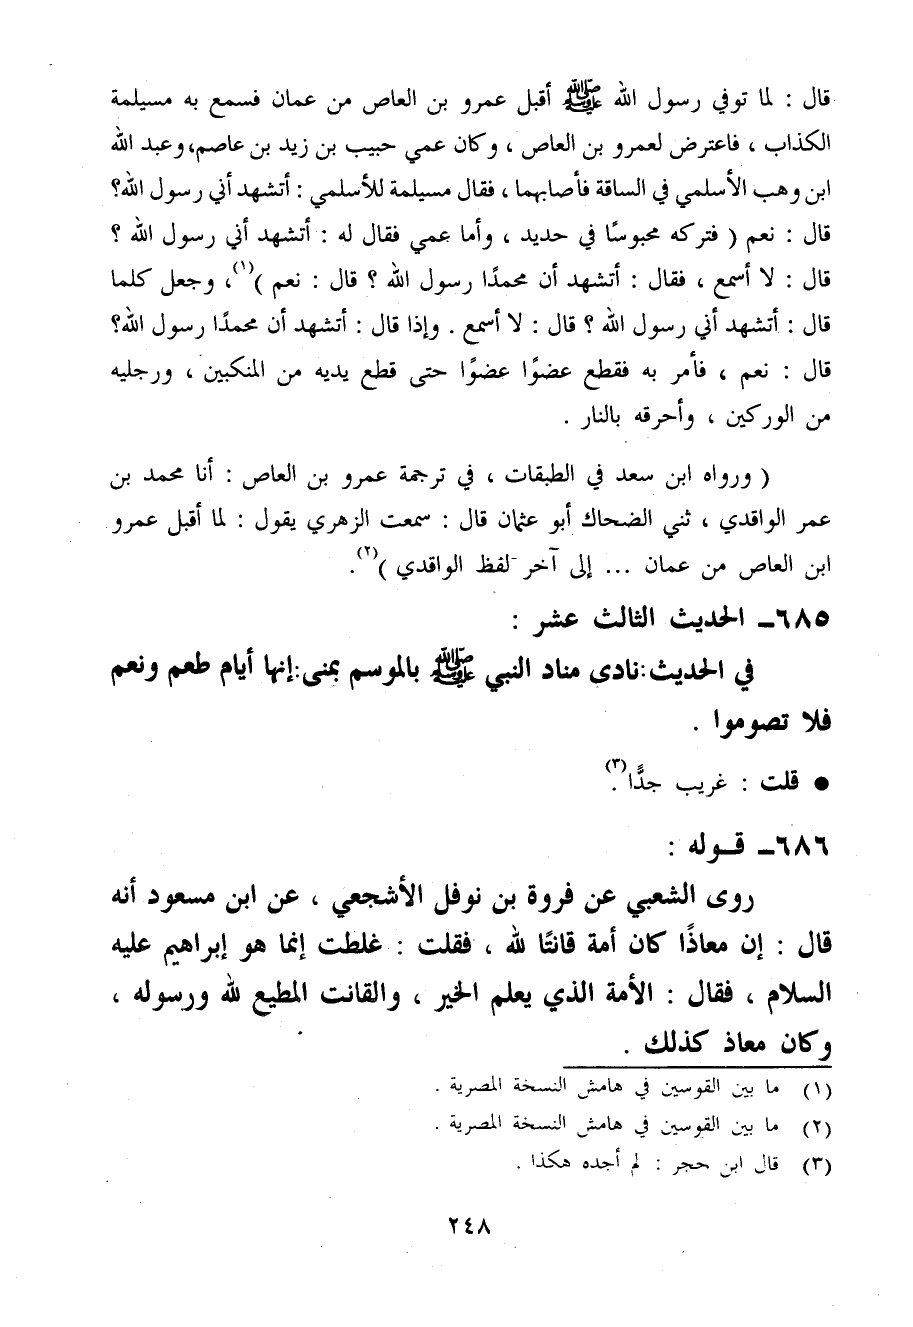 قال : لما توفي رسول الله ﷺ أقبل عمرو بن العاص من عمان فسمع به مسيلمة
الكذاب ، فاعترض لعمرو بن العاص ، وكان عمي حبيب بن زيد بن عاصم، وعبد الله
ابن وهب الأسلمي في الساقة فأصابهما ، فقال مسيلمة للأسلمي : أتشهد أني رسول الله؟
قال : نعم ( فتركه محبوسًا في حديد ، وأما عمي فقال له : أتشهد أني رسول الله ؟
قال : لا أسمع ، فقال : أتشهد أن محمدًا رسول الله ؟ قال : نعم )(١)، وجعل كلما
قال : أتشهد أني رسول الله ؟ قال : لا أسمع . وإذا قال : أتشهد أن محمدًا رسول الله؟
قال : نعم ، فأمر به فقطع عضوًا عضوًا حتى قطع يديه من المنكبين ، ورجليه
من الوركين ، وأحرقه بالنار .
( ورواه ابن سعد في الطبقات ، في ترجمة عمرو بن العاص : أنا محمد بن
عمر الواقدي ، ثني الضحاك أبو عثمان قال : سمعت الزهري يقول : لما أقبل عمرو
ابن العاص من عمان ... إلى آخر لفظ الواقدي )(٢).
٦٨٥ـ الحديث الثالث عشر :
في الحديث: نادى مناد النبي ﷺ بالموسم بمنى: إنها أيام طعم ونعم
فلا تصوموا .
● قلت : غريب جدًّا(٣).
٦٨٦ـ قـولـه :
روى الشعبي عن فروة بن نوفل الأشجعي ، عن ابن مسعود أنه
قال : إن معاذًا كان أمة قانتًا لله ، فقلت : غلطت إنما هو إبراهيم عليه
السلام ، فقال : الأمة الذي يعلم الخير ، والقانت المطيع لله ورسوله ،
وكان معاذ كذلك .
(١) ما بين القوسين في هامش النسخة المصرية .
(٢) ما بين القوسين في هامش النسخة المصرية .
(٣) قال ابن حجر : لم أجده هكذا .
٢٤٨